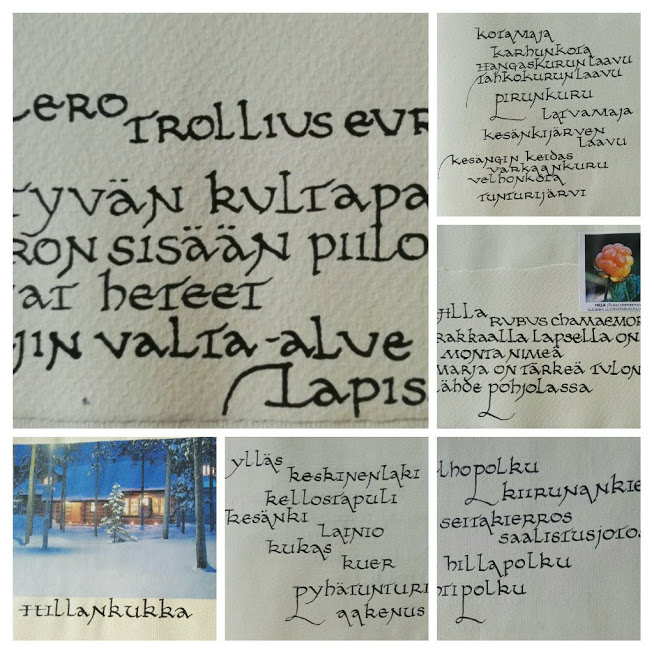 LERO
TROLLIUS EUR
TYVÄN KULTAPA
RON SISÄÄN PIILO
VAT HETEET
JIN VALTA-ALUE
LAPIS
KOTAMAJA
KARHUNKOTA
HANGASKURUN LAAVU
TAHKOKURUN LAAVU
PIRUNKURU
LATVAMAJA
KESÄNKIJÄRVEN
LAAVU
KESÄNGIN KEIDAS
VARKAANKURU
VELHONKOTA
TUNTURIJÄRVI
HILLA
HILLA RUBUS CHAMAEMOR
RAKKAALLA LAPSELLA ON
MONTA NIMEÄ
MARJA ON TÄRKEÄ TULON
LÄHDE POHJOLASSA
HILLANKUKKA
YLLÄS
KESKINENLAKI
KELLOSTAPULI
KESÄNKI
LAINIO
KUKAS
KUER
PYHÄTUNTURI
AAKENUS
LHOPOLKU
KIIRUNANKIE
SEITAKIERROS
SAALISTUSJOTOS
HILLAPOLKU
OTIPOLKU